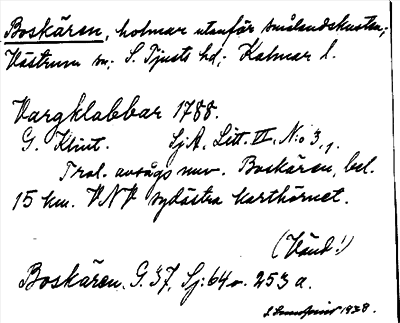 Boskären, holmar utanför smålandskusten;
Västrum sn; S. Tjusts hd; Kalmar l.
Vargklabbar 1788.
G. Klint. SjA. Litt. VI. N:o 3,1.
Trol. avsågs nuv. Boskären, bel.
15 km. VNV sydöstra karthörnet.
(Vänd!)
Boskären. G. 37, Sj: 64 o. 253 a.
1928.